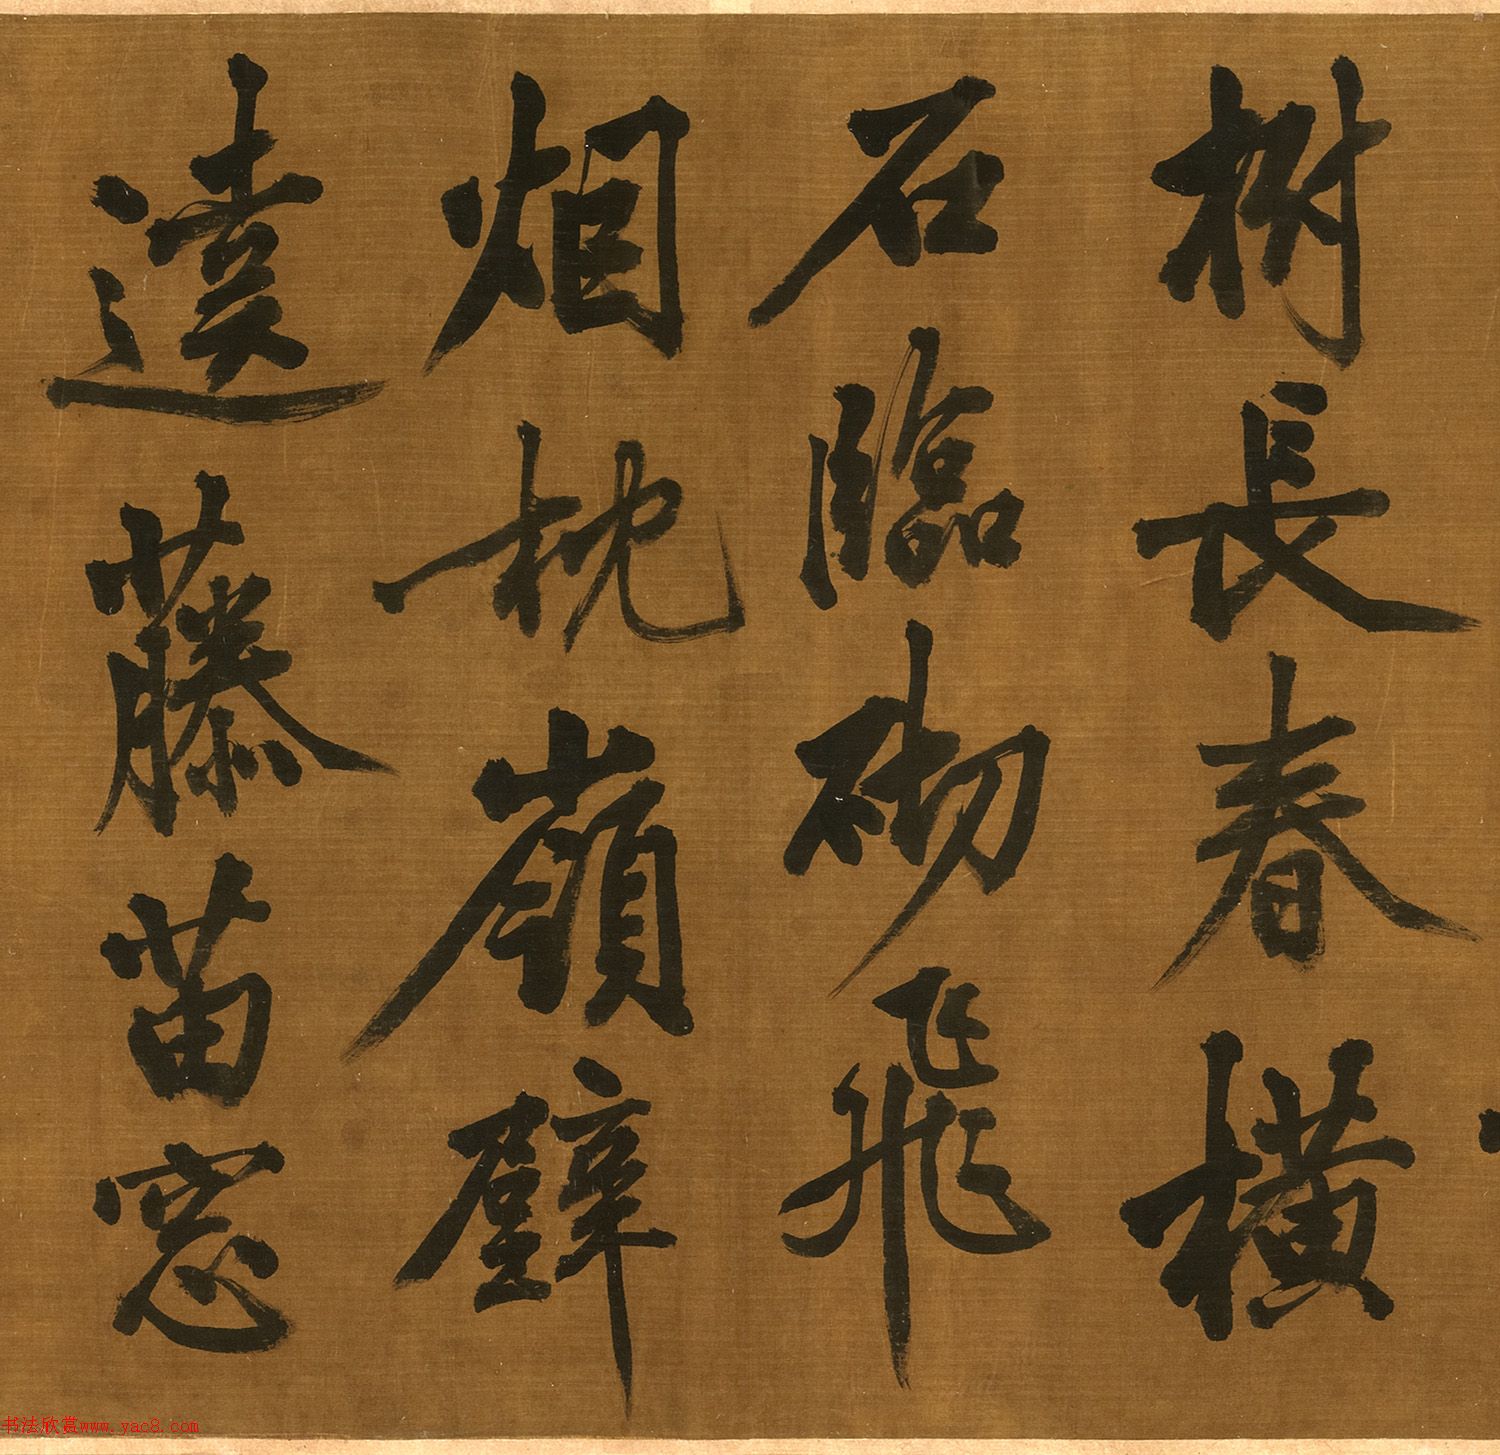 樹長春橫
石臨砌飛
烟枕嶺壁
遠藤苗窓
书法欣赏www.yac8.com